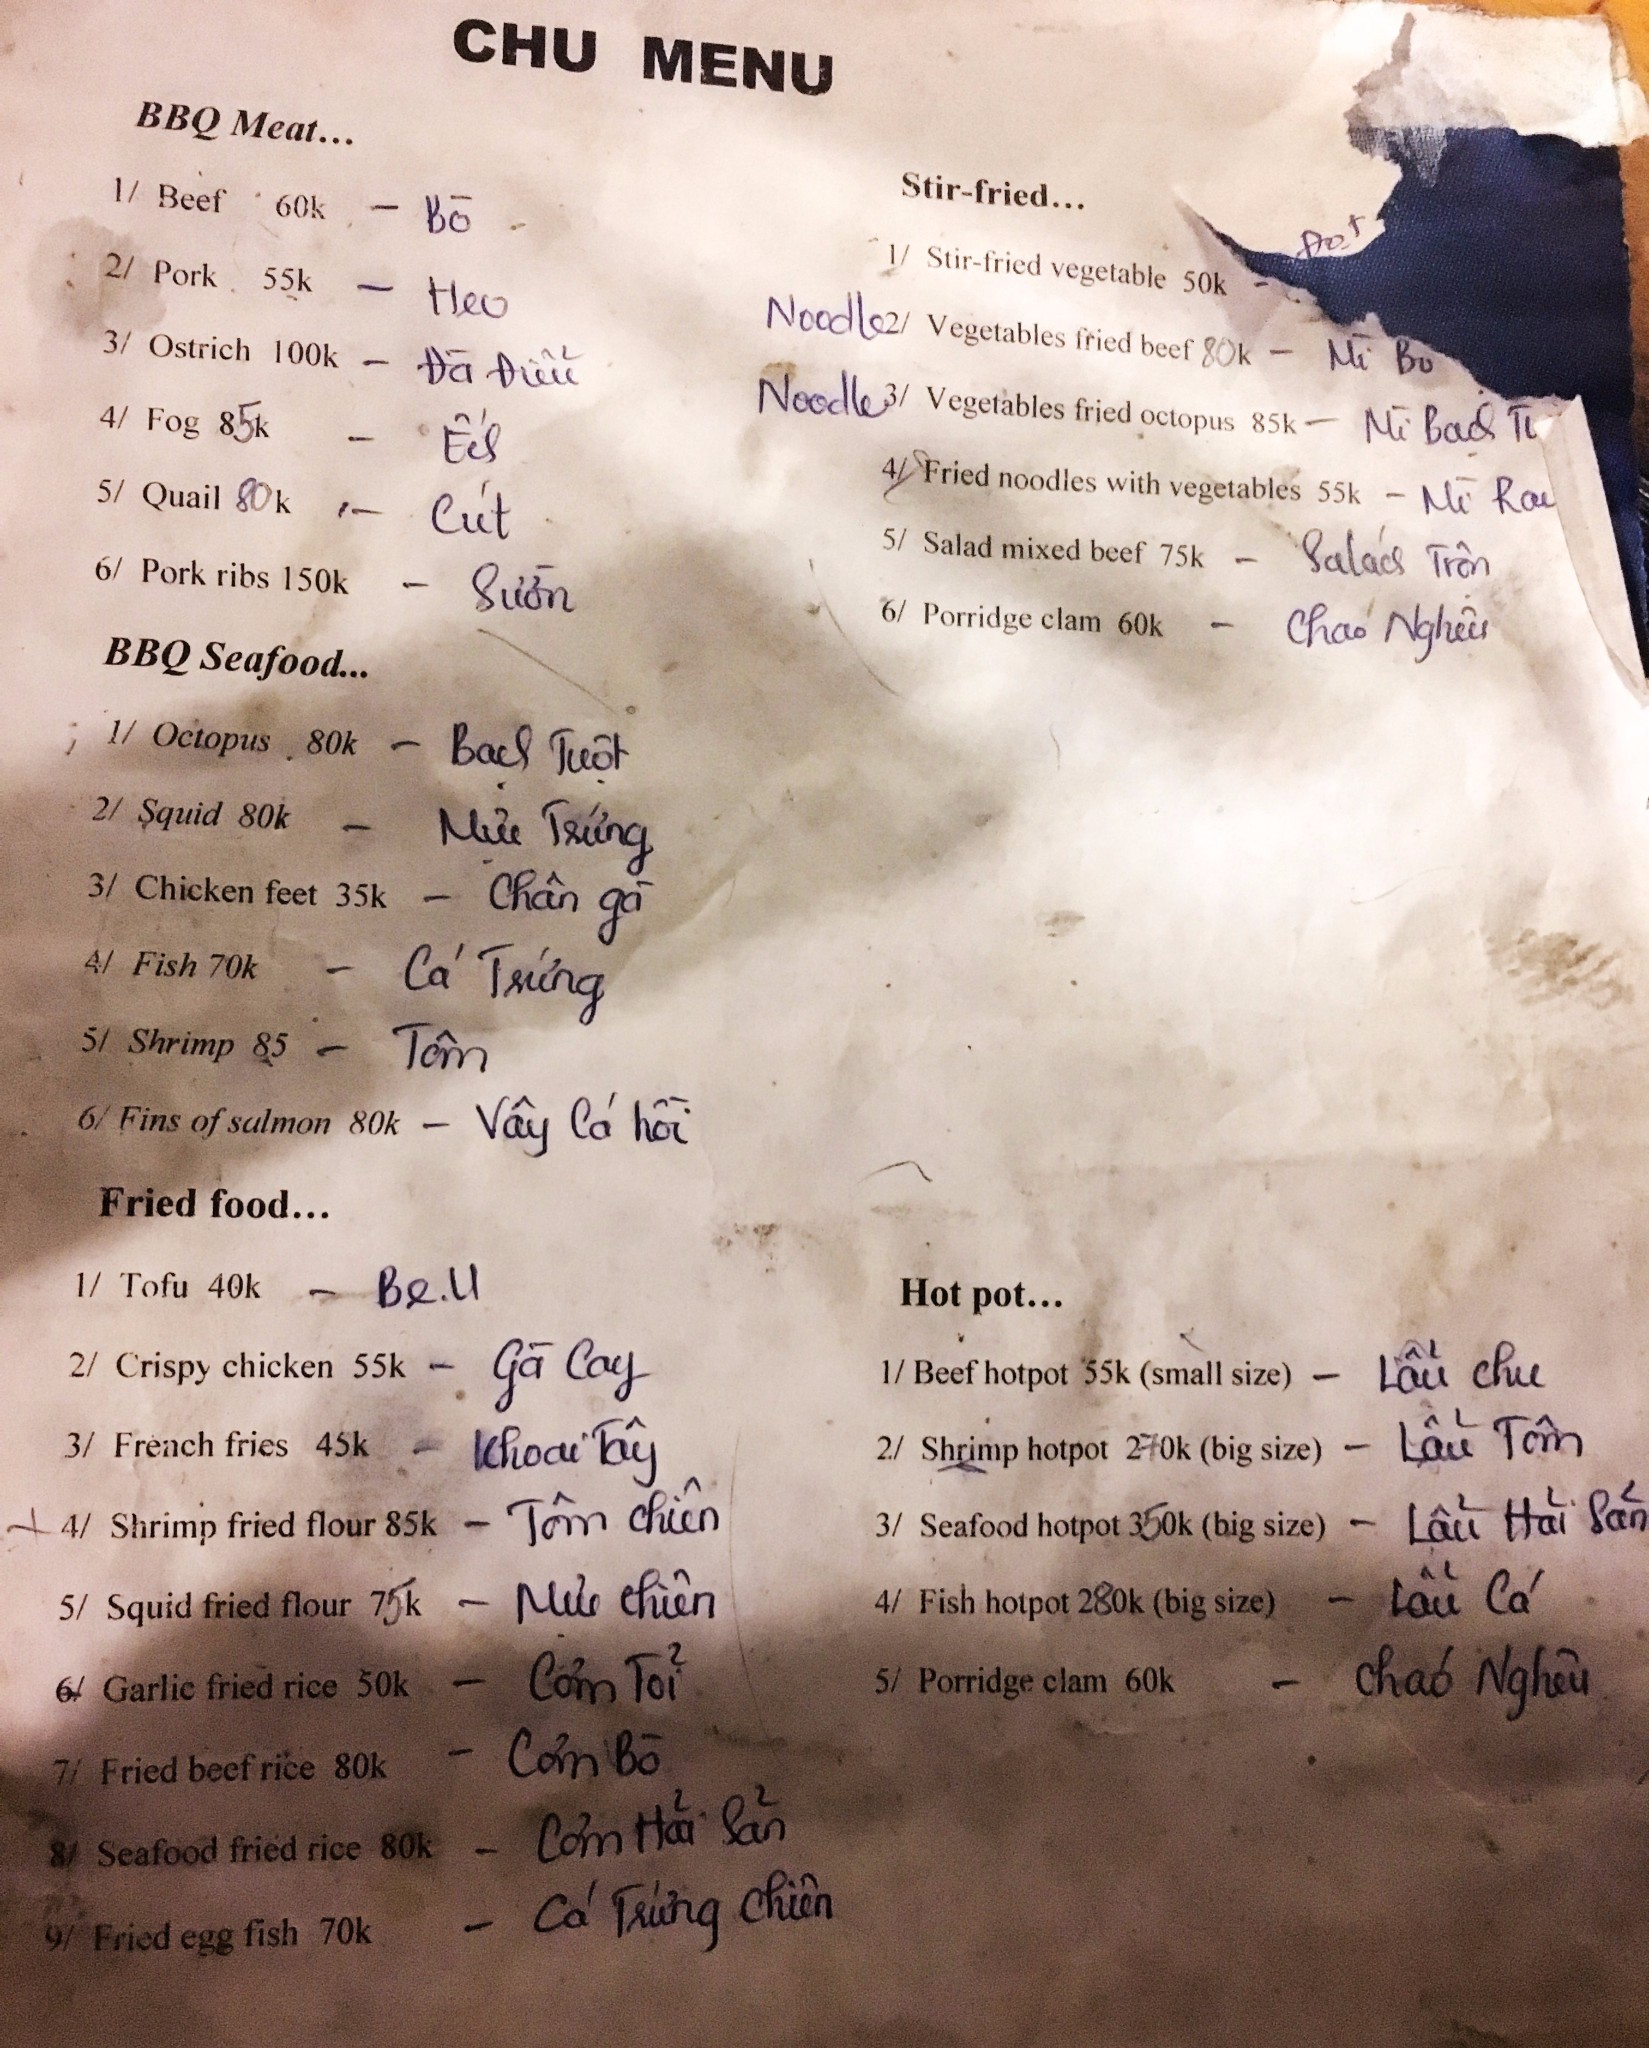 CHU MENU
BBQ Meat...
1/ Beef 60k - Bò
2/ Pork 55k - Heo
3/ Ostrich 100k - Đà Điểu
4/ Fog 85k - Ếch
5/ Quail 80k - Cút
6/ Pork ribs 150k - Sườn
BBQ Seafood...
1/ Octopus 80k - Bạch Tuột
2/ Squid 80k - Mực Trứng
3/ Chicken feet 35k - Chân gà
4/ Fish 70k - Cá Trứng
5/ Shrimp 85 - Tôm
6/ Fins of salmon 80k - Vây Cá hồi
Fried food...
1/ Tofu 40k -
2/ Crispy chicken 55k - Gà Cay
3/ French fries 45k - Khoai Tây
4/ Shrimp fried flour 85k - Tôm chiên
5/ Squid fried flour 75k - Mực chiên
6/ Garlic fried rice 50k - Cơm Tỏi
7/ Fried beef rice 80k - Cơm Bò
8/ Seafood fried rice 80k - Cơm Hải Sản
9/ Fried egg fish 70k - Cá Trứng chiên
Stir-fried...
1/ Stir-fried vegetable 50k -
Noodle 2/ Vegetables fried beef 80k - Mì Bò
Noodle 3/ Vegetables fried octopus 85k - Mì Bạch
4/ Fried noodles with vegetables 55k - Mì Rau
5/ Salad mixed beef 75k - Salách Trộn
6/ Porridge clam 60k - Cháo Nghêu
Hot pot...
1/ Beef hotpot 55k (small size) - Lẩu chu
2/ Shrimp hotpot 270k (big size) - Lẩu Tôm
3/ Seafood hotpot 350k (big size) - Lẩu Hải Sản
4/ Fish hotpot 280k (big size) - Lẩu Cá
5/ Porridge clam 60k - Cháo Nghêu